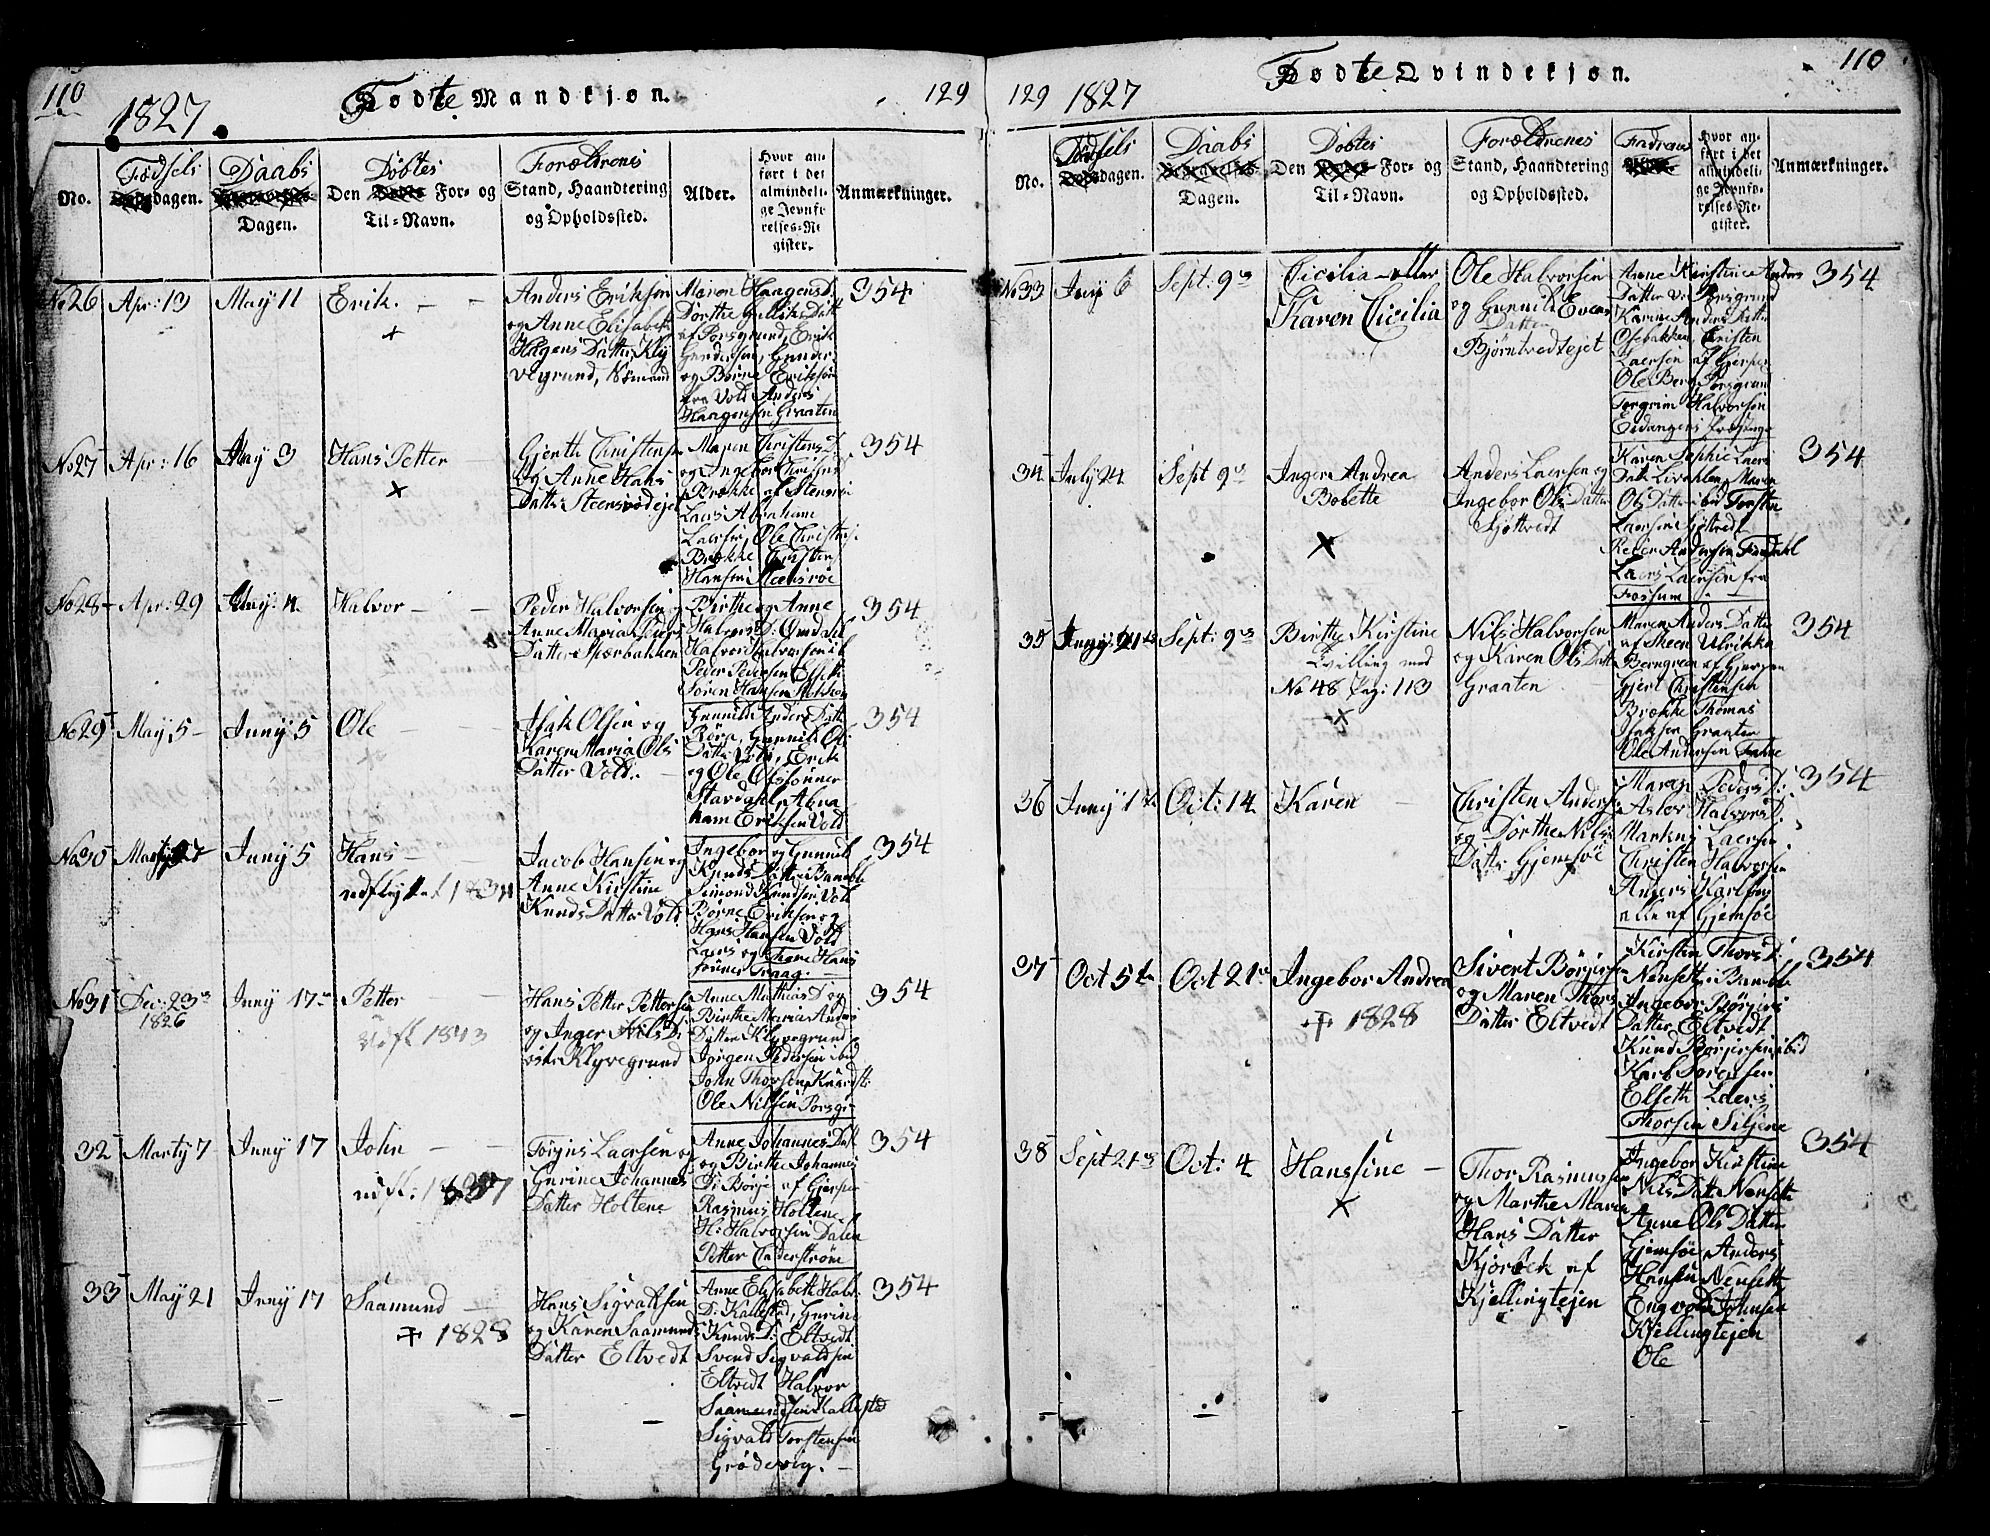 110
1827.
Fødte Mandkjøn.
129
No.
Fødsels dagen.
Daabs
Dagen.
Den Döbtes For- og
Til-Navn.
Forældrenes
Stand, Haandtering
og Opholdssted.
Alder.
Hvor an-
ført i det
almindeli-
ge Jevnfø
relses-Re
gister.
Anmærkninger.
No 26
Apr: 13
May 11
Erik. - -
+
Anders Eriksen
og Anne Elisabeth
Hagens Datter Kly
vegrund, Nomand
Maren Haagens D
Dorthe Gulliks Datt
af Porsgrund, Erik
Gundersen, Gunder
og Børne Eriksen
fra Vold Anders
Haagensen Graaten
354
No 27
Apr: 16
May 3
Hans Petter
x
Gjerth Christensen
og Anne Hans
Datter Steensrödejet
Maren Christens D.
og Ingebor Christens
Brække af Stensrøe
Laers Abraham
Laersen, Ole Christens
Brække Christen
Hansen Steensröe
354
No 28
Apr: 29
Halvor - -
Peder Halvorsen og
Anne Maria Peders
Datter Spærbakken
Birthe og Anne
Halvors D: Omdahl
Halvor Halvorsen ib
Peder Pedersen
Sören Hansen
354
No 29
May 5 -
Juny 5
Ole -
x
Isak Olsen og
Karen Maria Ols
Datter Vold. -
Gunnild Anders Datt
Röra, Gunnild Ols
Datter Vold, Erik
og Ole Olssönner
Stavdahl, Abra
ham Eriksen Vold
354
No 30
Juny 5
Hans -
udflyttet 1831
Jacob Hansen og
Anne Kirstine
Knuds Datter Vold
Ingebor og Gunnild
Knuds Datter Bamble
Simond Knudsen Vold
Börne Eriksen og
Hans Hansen Vold
Laers og Thore Hans
sönner Traag. -
354
No 31
Dec: 23
1826
Juny 17
Petter - -
Udfl 1843
Hans Petter Pettersen
og Inger Nils D:
Klyvegrund
Anne Mathias D og
Birthe Maria Anders
Datter Klyvegrund
Jörgen Pedersen ibid
John Thorsen Knardst:
Ole Nilsen Porsgr
354
32
Marty 7
Juny 17
John - -
udfl: 1837
Torgius Laersen og
Gurine Johannes
Datter Holtene
Anne Johannes Datt
og Birthe Johannes
D: Børje af Gjerpen
Rasmus Holtene
H: Halvorsen Dalen
Petter Cederström
354
33
May 21
Juny 17
Saamund -
+ 1828
Hans Sigvaldsen
og Karen Saamunds
Datter Eltvedt
Anne Elisabeth Halv:
D: Kallestad, Gurine
Knuds D: Eltvedt
Svend Sigvaldsen
Eltvedt Halvor
Saamundsen Kallestad
Sigvald Torstensen
Grödevig. -
354
129
1827
Fødte Qvindekjøn.
110
No.
Fødsels dagen.
Daabs
Dagen.
Den Döbtes For- og
Til-Navn.
Forældrenes
Stand, Haandtering
og Opholdssted.
Fadrene
Hvor an-
ført i det
almindeli-
ge Jevnfø-
relses-Re-
gister.
Anmærkninger.
No 33
July 6
Sept: 9
Cicilia - eller
Karen Cicilia
Ole Halvorsen
og Gunnild Evens
Datter
Bjørntvedtejet
Anne Kirstine Anders
Datter Porsgrund
Karine Anders Datter
Osebakken, Christen
Laersen af Gjerpen
Ole Berg Porsgrund
Torgrim Halvorsen
Eidangers
354
34
July 24
Sept 9
Inger Andrea
Bobette
x
Anders Laersen og
Ingebor Ols Datter
Tjöttvedt
Karen Sophie Laers
Datt Livahlen, Maren
Ols Datter ibid Torsten
Laersen Tjøtvedt
Peder Andersen
Laers Laersen fra
Fossum
354
35
Sept: 9
Birthe Kirstine
Tvilling med
No 48 Pag: 113
x
Nils Halvorsen
og Karen Ols Datter
Graaten
Maren Anders Datter
af Skeen Ulrikka
Berngreen af Gjerpen
Gjert Christensen
Brække Thomas
Isaksen Graaten
Ole Andersen
354
36
Oct: 14
Karen -
Christen Anders
og Dorthe Nils
Datter Gjemsöe
Maren Peders D:
Aslov Halvors D:
Markus Laersen
Christen Halvorsen
Anders Karlsen
alle af Gjemsöe
354
37
Oct 5te
Oct 21
Ingebor Andrea
+ 1828
Sivert Börjersen
og Maren Thors
Datter Eltvedt
Kirstin Thors D:
Nensett i Bamble
Ingebor Börjers
Datter Eltvedt
Knud Börjersen ibid
Karb Sörensen
Elseth Laers
Thorsen Siljene
354
38
Sept 21
Oct: 4
Hanssine -
x
Thor Rasmussen
og Marthe Maria
Hans Datter
Kjørbek af
Kjellingtejen
Ingebor Kirstine
Nils Datt Nensett
Anne Ols Datter
Gjemsöe Anders
Hansen Nensett
Engvold Johnsen
Kjellingtejen
Ole
354